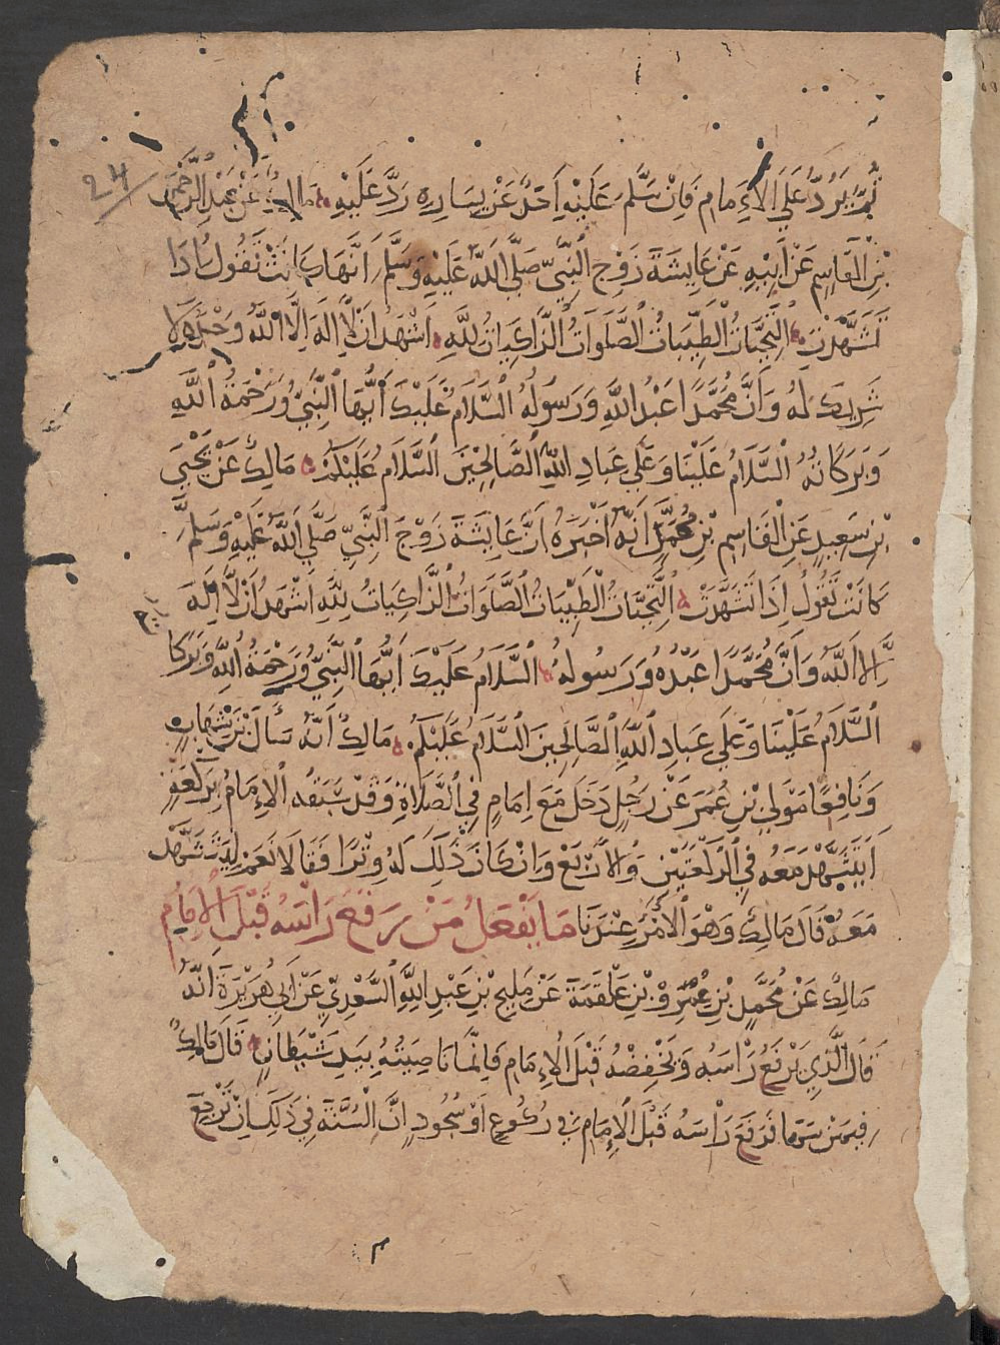 24
ثُمَّ يَرُدُّ عَلَى الْإِمَامِ فَإِنْ سَلَّمَ عَلَيْهِ أَحَدٌ عَنْ يَسَارِهِ رَدَّ عَلَيْهِ مَالِكٌ عَنْ عَبْدِ الرَّحْمَنِ
بْنِ الْقَاسِمِ عَنْ أَبِيهِ عَنْ عَايِشَةَ زَوْجِ النَّبِيِّ صَلَّى اللَّهُ عَلَيْهِ وَسَلَّمَ أَنَّهَا كَانَتْ تَقُولُ إِذَا
تَشَهَّدَتْ التَّحِيَّاتُ الطَّيِّبَاتُ الصَّلَوَاتُ الزَّاكِيَاتُ لِلَّهِ أَشْهَدُ أَنْ لَا إِلَهَ إِلَّا اللَّهُ وَحْدَهُ لَا
شَرِيكَ لَهُ وَأَنَّ مُحَمَّدًا عَبْدُ اللَّهِ وَرَسُولُهُ السَّلَامُ عَلَيْكَ أَيُّهَا النَّبِيُّ وَرَحْمَةُ اللَّهِ
وَبَرَكَاتُهُ السَّلَامُ عَلَيْنَا وَعَلَى عِبَادِ اللَّهِ الصَّالِحِينَ السَّلَامُ عَلَيْكُمْ مَالِكٌ عَنْ يَحْيَى
بْنِ سَعِيدٍ عَنِ الْقَاسِمِ بْنِ مُحَمَّدٍ أَنَّهُ أَخْبَرَهُ أَنَّ عَايِشَةَ زَوْجَ النَّبِيِّ صَلَّى اللَّهُ عَلَيْهِ وَسَلَّمَ
كَانَتْ تَقُولُ إِذَا تَشَهَّدَتْ التَّحِيَّاتُ الطَّيِّبَاتُ الصَّلَوَاتُ الزَّاكِيَاتُ لِلَّهِ أَشْهَدُ أَنْ لَا إِلَهَ
إِلَّا اللَّهُ وَأَنَّ مُحَمَّدًا عَبْدُهُ وَرَسُولُهُ السَّلَامُ عَلَيْكَ أَيُّهَا النَّبِيُّ وَرَحْمَةُ اللَّهِ وَبَرَكَا
السَّلَامُ عَلَيْنَا وَعَلَى عِبَادِ اللَّهِ الصَّالِحِينَ السَّلَامُ عَلَيْكُمْ مَالِكٌ أَنَّهُ سَأَلَ بْنَ شِهَابٍ
وَنَافِعًا مَوْلَى بْنِ عُمَرَ عَنْ رَجُلٍ دَخَلَ مَعَ إِمَامٍ فِي الصَّلَاةِ وَقَدْ سَبَقَهُ الْإِمَامُ بِرَكْعَةٍ
أَيَتَشَهَّدُ مَعَهُ فِي الرَّكْعَتَيْنِ وَالْأَرْبَعِ وَإِنْ كَانَ ذَلِكَ لَهُ وِتْرًا فَقَالَا نَعَمْ لِيَتَشَهَّدْ
مَعَهُ قَالَ مَالِكٌ وَهُوَ الْأَمْرُ عِنْدَنَا مَا يَفْعَلُ مَنْ رَفَعَ رَأْسَهُ قَبْلَ الْإِمَامِ
مَالِكٌ عَنْ مُحَمَّدِ بْنِ عَمْرِو بْنِ عَلْقَمَةَ عَنْ مَلِيحِ بْنِ عَبْدِ اللَّهِ السَّعْدِيِّ عَنْ أَبِي هُرَيْرَةَ أَنَّهُ
قَالَ الَّذِي يَرْفَعُ رَأْسَهُ وَيَخْفِضُهُ قَبْلَ الْإِمَامِ فَإِنَّمَا نَاصِيَتُهُ بِيَدِ شَيْطَانٍ قَالَ مَالِكٌ
فِيمَنْ سَهَا فَرَفَعَ رَأْسَهُ قَبْلَ الْإِمَامِ فِي رُكُوعٍ أَوْ سُجُودٍ إِنَّ السُّنَّةَ فِي ذَلِكَ إِنْ تَرْجِعَ